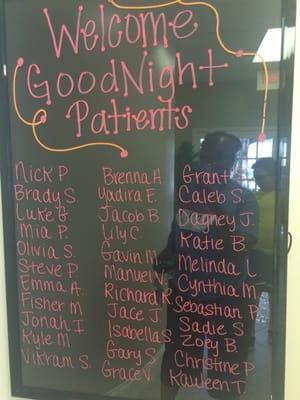 Welcome
GoodNight
Patients
Nick P.
Brady S.
Luke G.
Mia P.
Olivia S.
Steve P.
Emma A.
Fisher M.
Jonah I.
Kyle M
Vikram S.
Brenna A.
Yadira E.
Jacob B.
Lily C
Gavin M.
Manuel V.
Richard R.
Jace J.
Isabella S.
Gary S.
Grace V.
Grant
Caleb S.
Dagney J.
Katie B.
Melinda L.
Cynthia M.
Sebastian P.
Sadie S.
Zoey B.
Christine P.
Kayleen T.